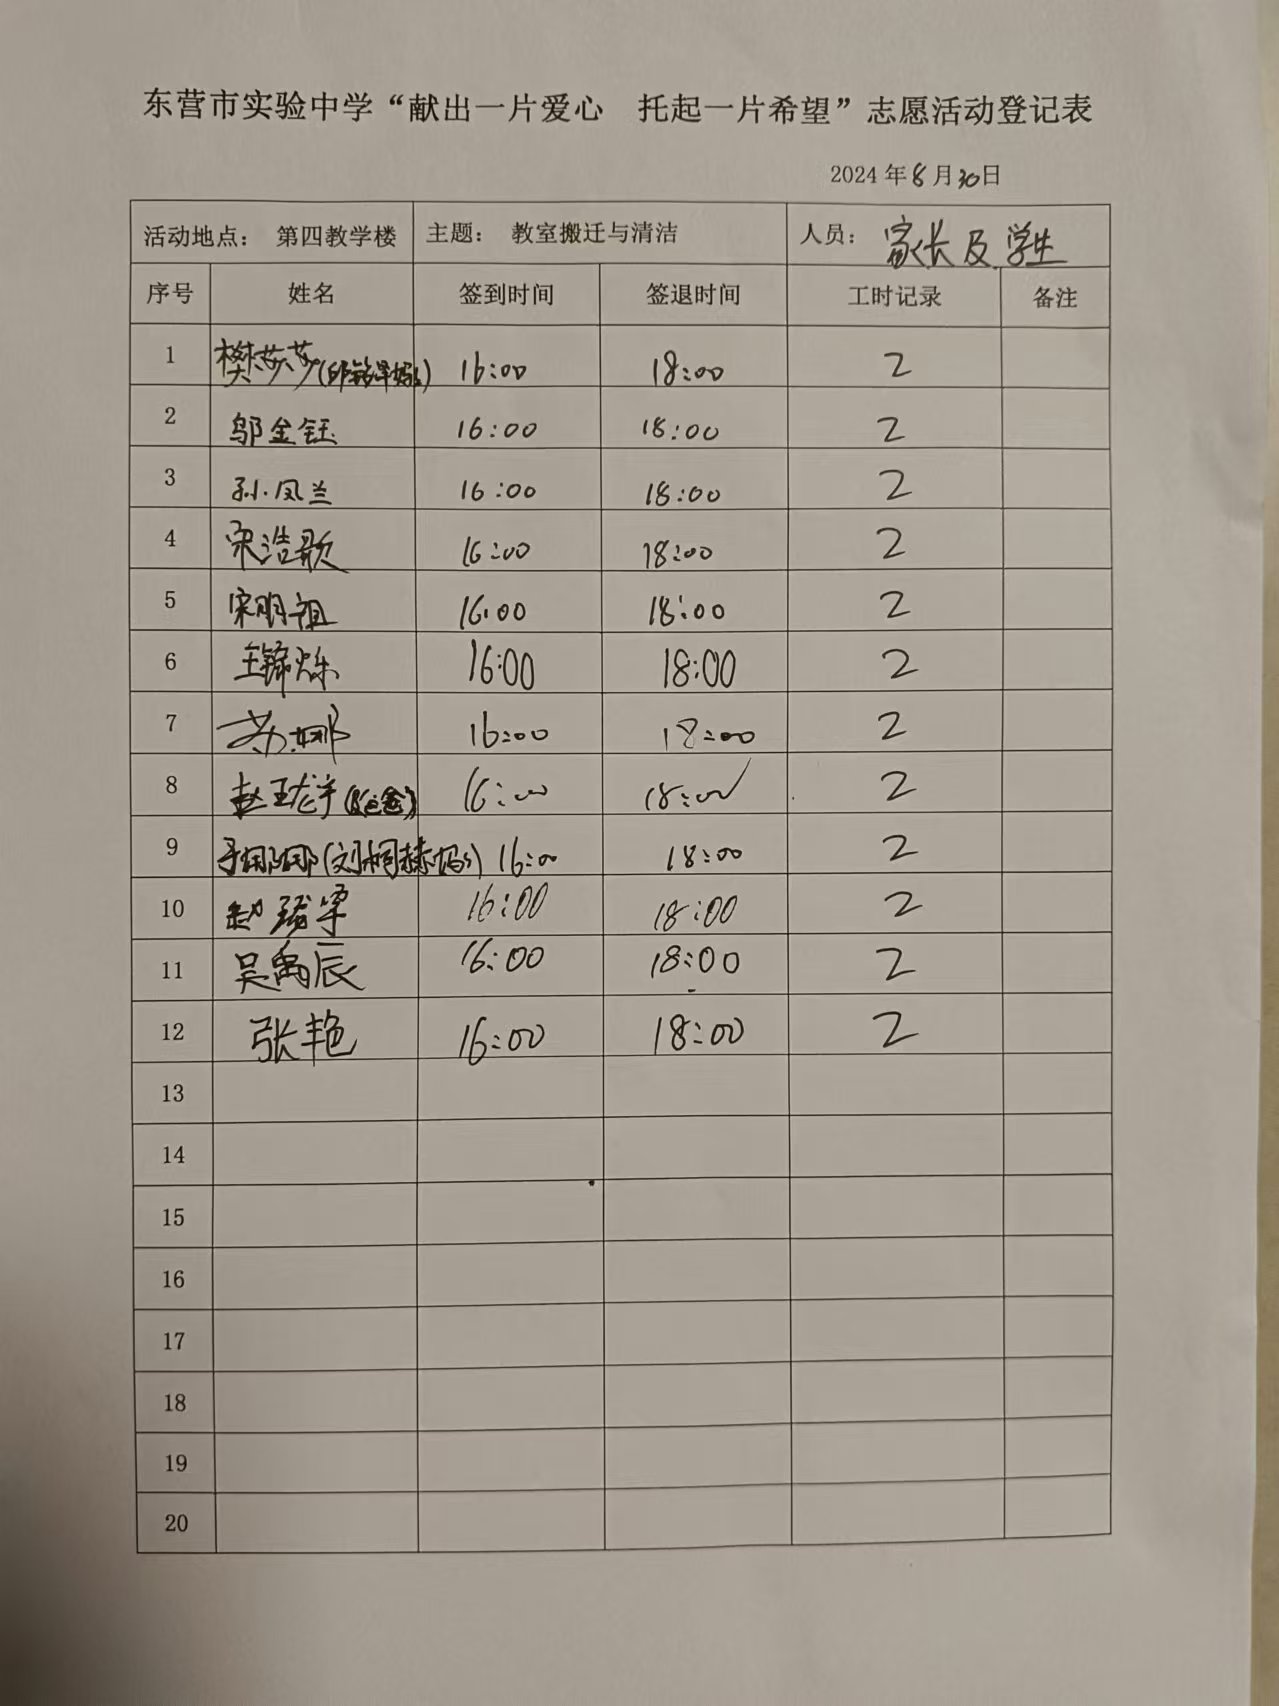 东营市实验中学“献出一片爱心 托起一片希望”志愿活动登记表
2024年8月30日
活动地点： 第四教学楼 主题： 教室搬迁与清洁 人员： 家长及学生
序号 姓名 签到时间 签退时间 工时记录 备注
1 樊莎莎 16:00 18:00 2
2 邬金钰 16:00 18:00 2
3 孙凤兰 16:00 18:00 2
4 宋浩歌 16:00 18:00 2
5 宋明祖 16:00 18:00 2
6 王锦烁 16:00 18:00 2
7 苏娜 16:00 18:00 2
8 赵 16:00 18:00 2
9 于娜娜(刘桐赫妈妈) 16:00 18:00 2
10 赵 16:00 18:00 2
11 吴禹辰 16:00 18:00 2
12 张艳 16:00 18:00 2
13
14
15
16
17
18
19
20